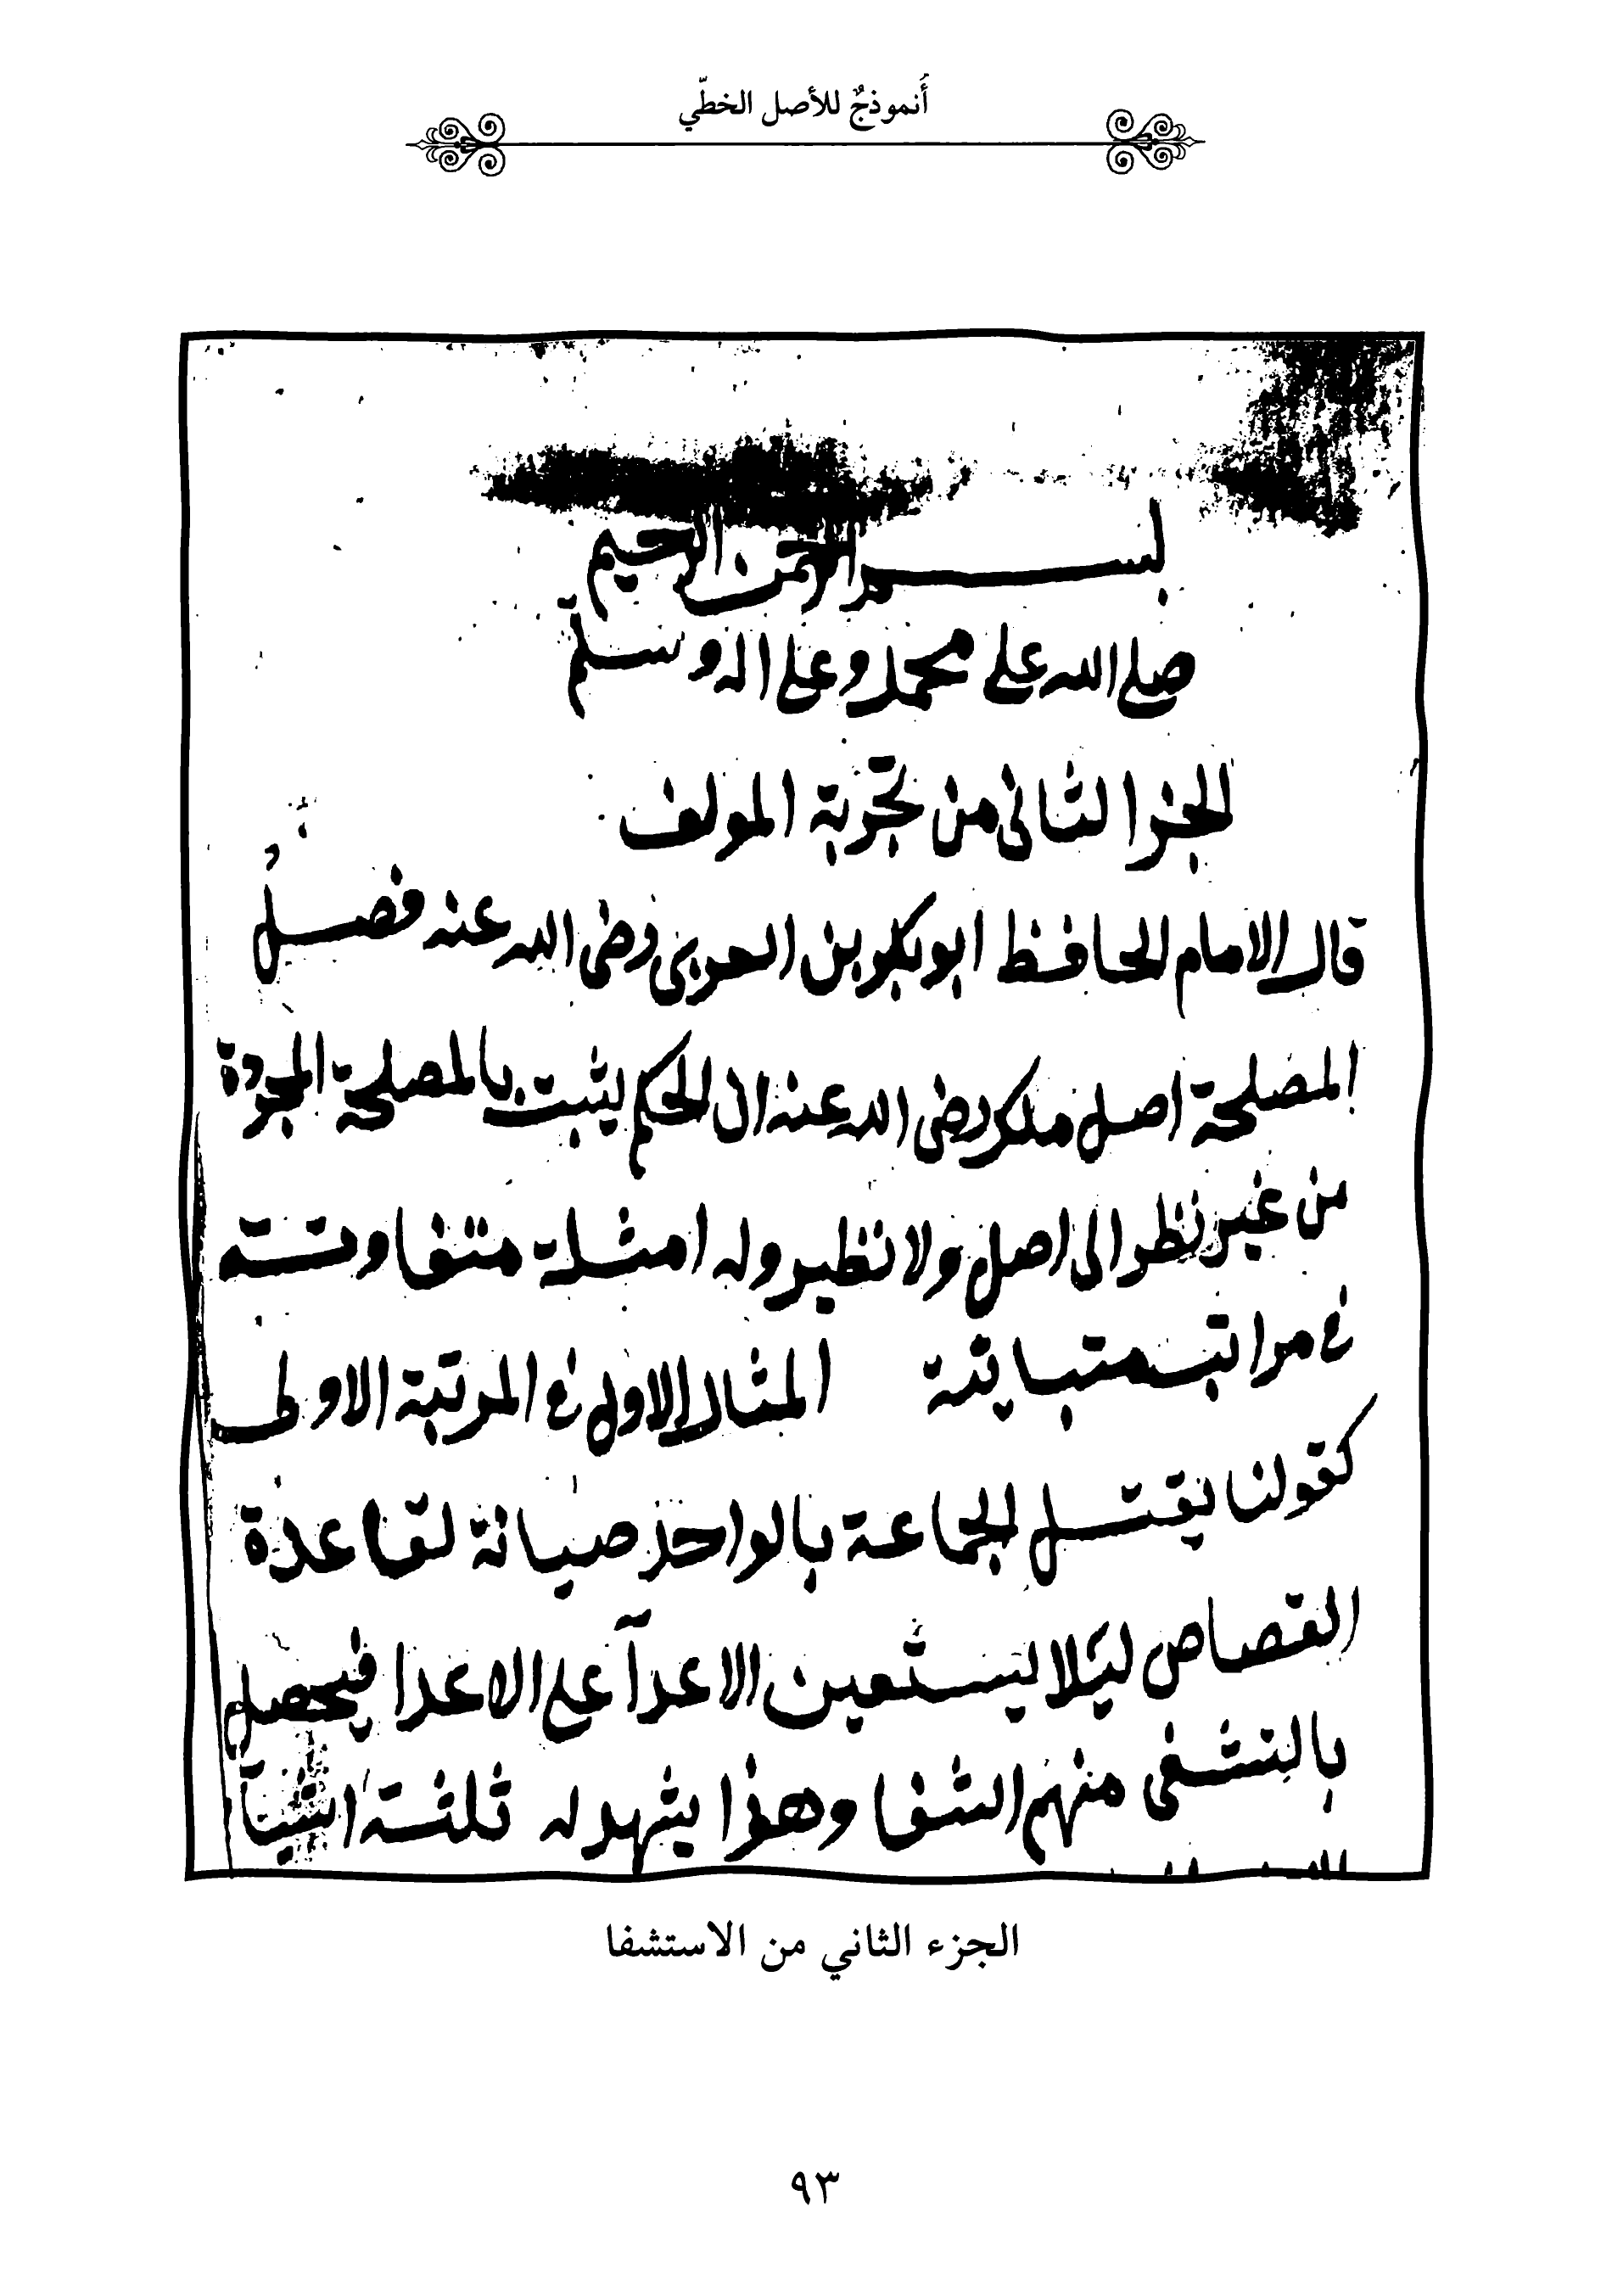 أَنموذجٌ للأصل الخطّي
بسم الله الرحمن الرحيم
صلى الله على محمد وعلى اله وسلم
الجزا الثاني من تجزية المولف
قال الامام الحافظ ابو بكر بن العربي رضى الله عنه فصل
المصلحة اصل ملك رضى الله عنه ان الحكم يثبت بالمصلحة المجردة
من غير نظر الى اصل ولا نظير وله امثلة متفاوتة
في مراتب متباينة المثال الاول في المرتبة الاولى
كقولنا يقتل الجماعة بالواحد صيانة لقاعدة
القصاص ليلا يستعين الاعدآ على الاعدا فيحصل
بالتشفى منهم الشفا وهذا يشهد له ثلثة اشيآ
الجزء الثاني من الاستشفا
٩٣